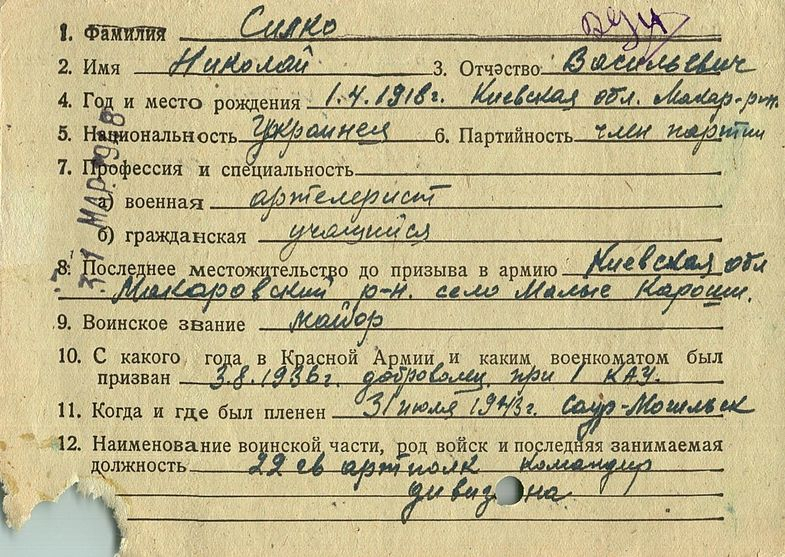 1. Фамилия Силко
2. Имя Николай 3. Отчество Васильевич
4. Год и место рождения 1.4.1918г. Киевская обл. Макар-р-н.
5. Национальность Украинец 6. Партийность член партии
7. Профессия и специальность
а) военная артелерист
б) гражданская учащийся
8. Последнее местожительство до призыва в армию Киевская обл
Макаровский р-н. село Малые Кароши.
9. Воинское звание майор
10. С какого года в Красной Армии и каким военкоматом был
призван 3.8.1936г. доброволец при 1 КАУ.
11. Когда и где был пленен 31 июля 1943г. Саур-Могильск
12. Наименование воинской части, род войск и последняя занимаемая
должность 22 гв артполк командир
дивизиона